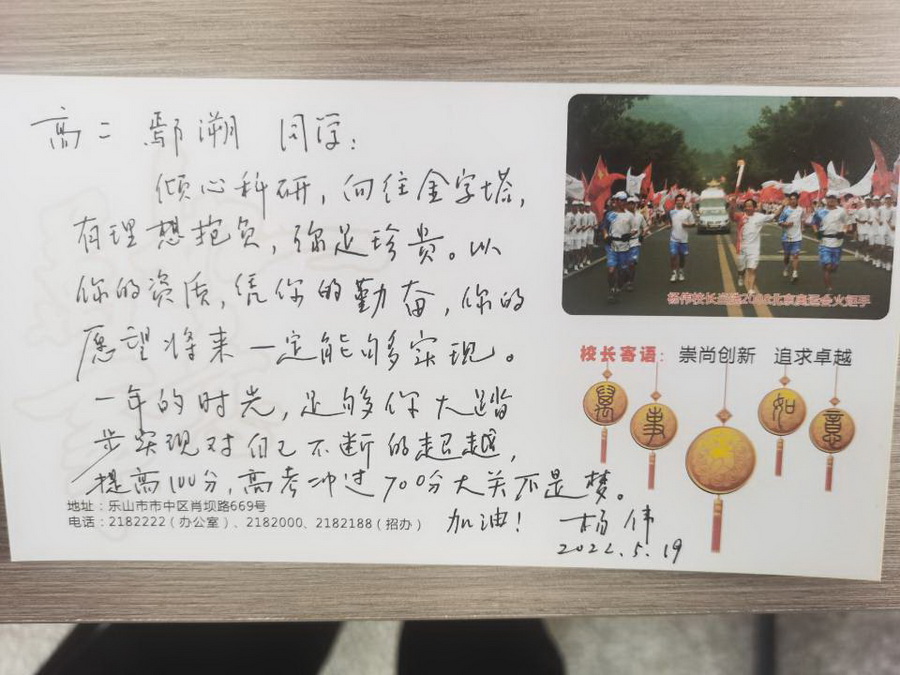 高二 鄢溯 同学：
倾心科研，向往金字塔，
有理想抱负，弥足珍贵。以
你的资质，凭你的勤奋，你的
愿望将来一定能够实现。
一年的时光，足够你大踏
步实现对自己不断的超越，
提高100分，高考冲过700分大关不是梦。
加油！ 杨伟
2022.5.19
地址：乐山市市中区肖坝路669号
电话：2182222（办公室）、2182000、2182188（招办）
杨伟校长当选2008北京奥运会火炬手
校长寄语： 崇尚创新 追求卓越
萬 事 如 意